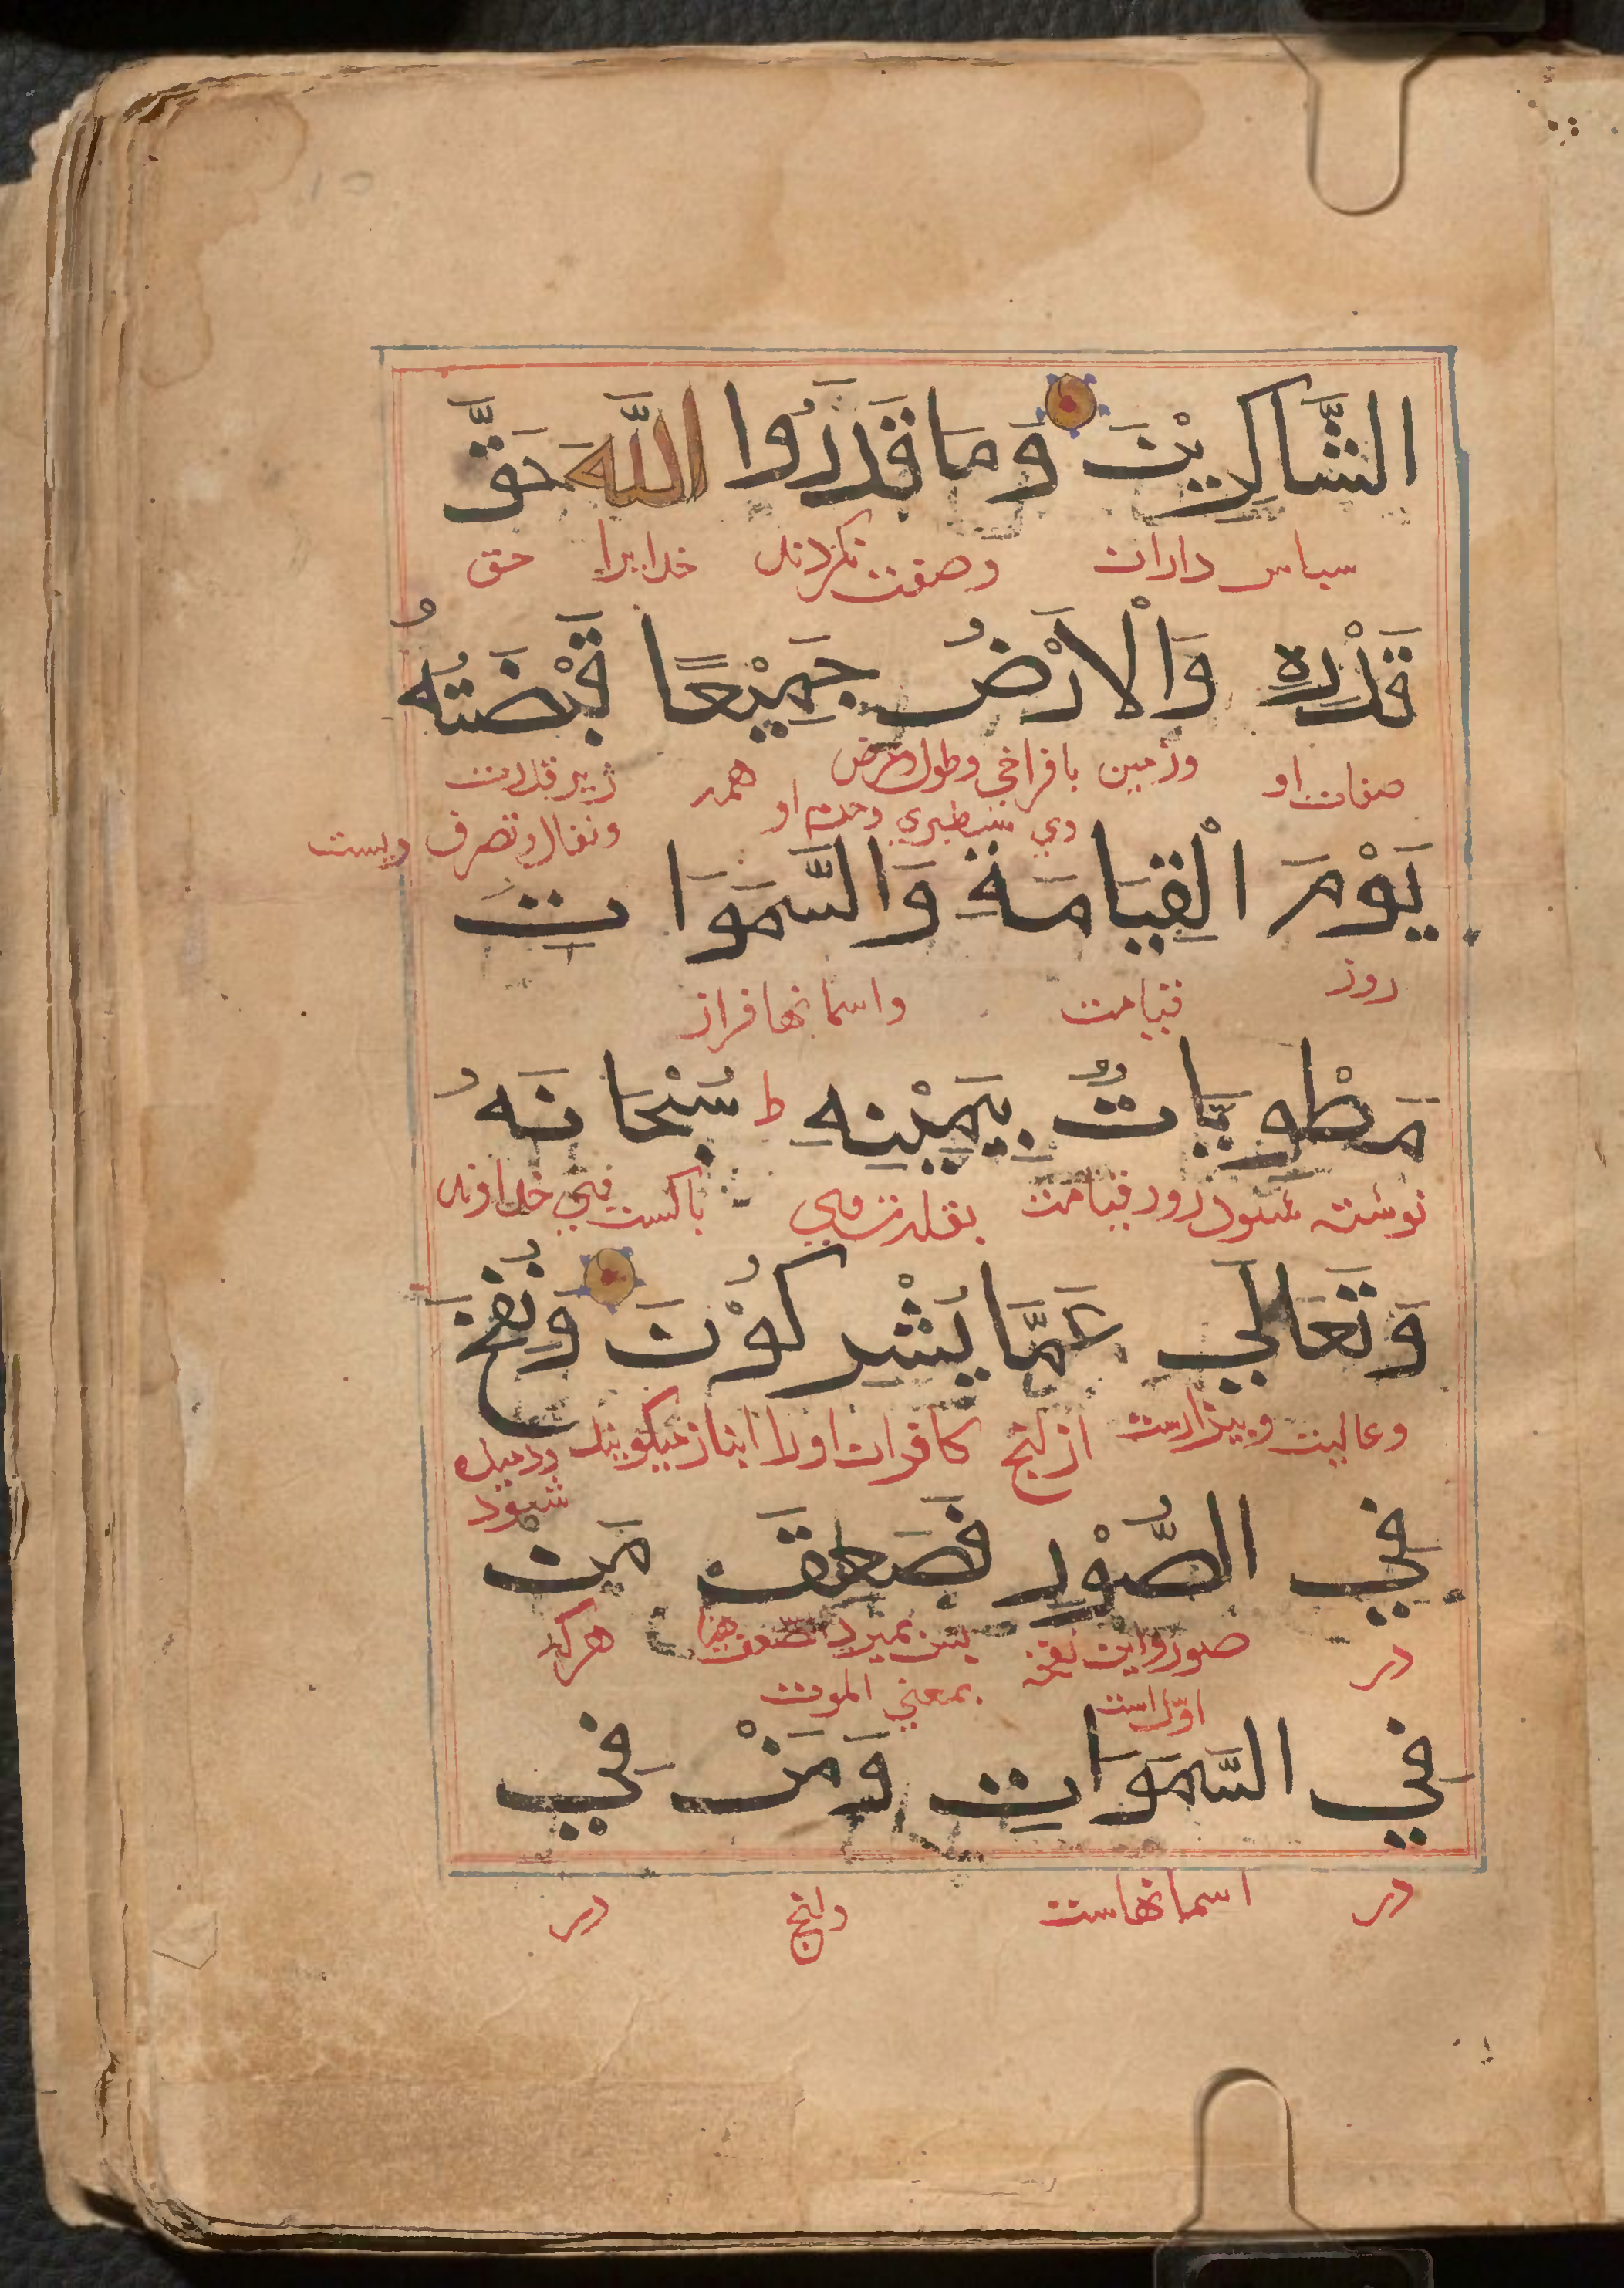 الشَّاكِرِيْنَ وَمَا قَدَرُوا اللَّهَ حَقَّ
سپاس داران وصفت نكردند خدايرا حق
قَدْرِهِ وَالْاَرْضُ جَمِيْعًا قَبْضَتُهُ
صفات او وزمين با فراخي وطول وعرض همه زير قدرت
وي سطبري او ونفاذ وتصرف ويست
يَوْمَ الْقِيَامَةِ وَالسَّمَوَاتِ
روز قيامت واسمانها فراز
مَطْوِيَّاتٌ بِيَمِيْنِهِ ط سُبْحَانَهُ
نوشته شود روز قيامت بقدرت وي پاكست خداوند
وَتَعَالَي عَمَّا يُشْرِكُوْنَ وَنُفِخَ
وعاليت وبيزارست ازانچ كافران اورا انباز ميكويند ودميده
شود
فِي الصُّوْرِ فَصَعِقَ مَنْ
در صور واين نفخه پس بميرد هركه
اوّل است بمعني الموت
فِي السَّمَوَاتِ وَمَنْ فِي
در اسمانهاست وانچ در